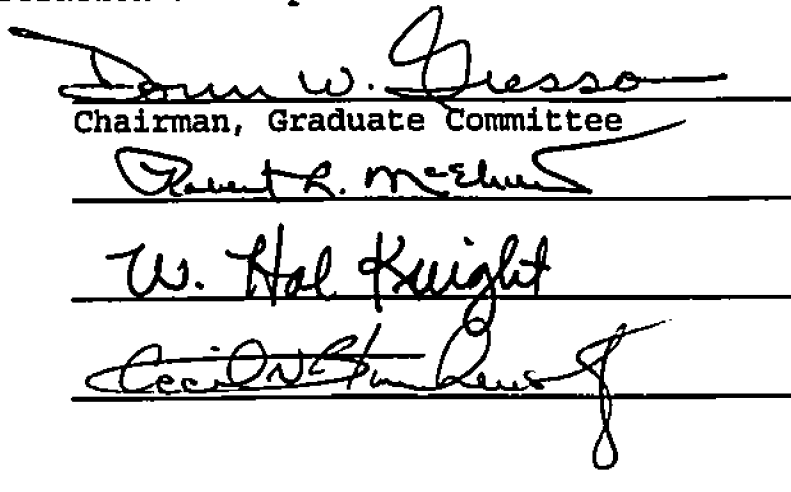 W. Gresso
Chairman, Graduate Committee
Robert L. McElrath
W. Hal Knight
Cecil N. Blankenship